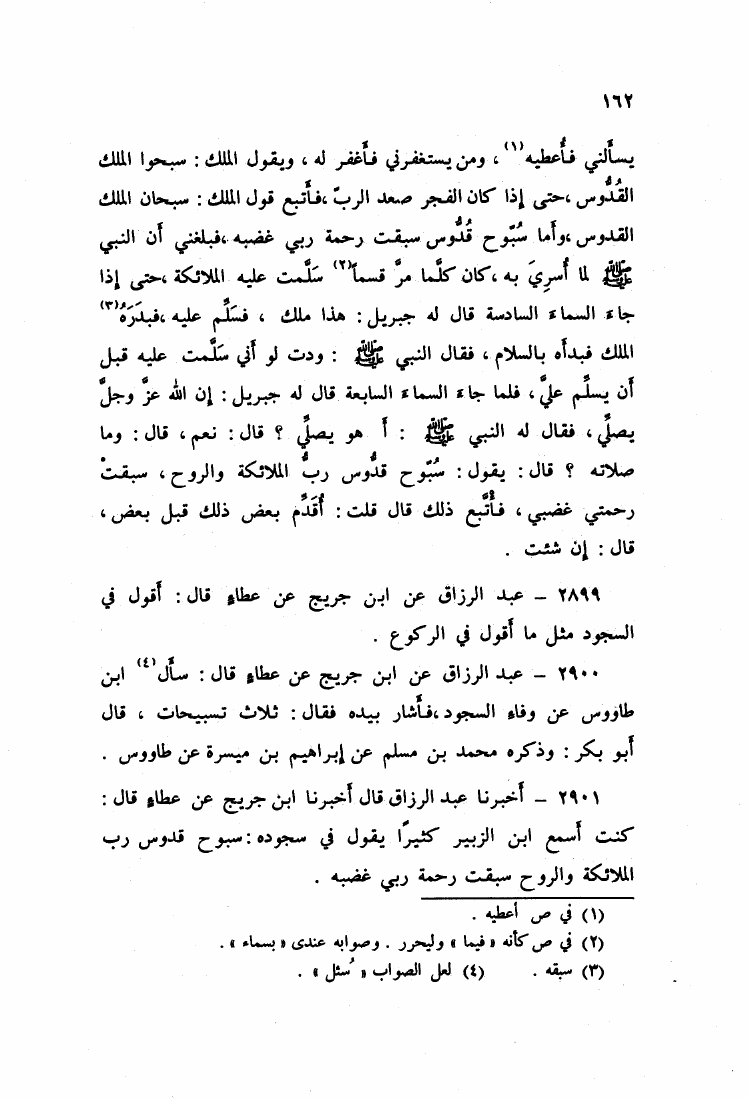 ١٦٢
يسألني فأُعطيه(١)، ومن يستغفرني فأَغفر له، ويقول الملك: سبحوا الملك
القُدُّوس، حتى إذا كان الفجر صعد الربّ، فأُتبع قول الملك: سبحان الملك
القدوس، وأَما سُبّوح قُدُّوس سبقت رحمة ربي غضبه، فبلغني أن النبي
ﷺ لما أُسرِيَ به، كان كلَّما مرَّ قسماً(٢) سَلَّمت عليه الملائكة، حتى إذا
جاءَ السماءَ السادسة قال له جبريل: هذا ملك، فسَلِّم عليه، فبدَرَهُ(٣)
الملك فبدأه بالسلام، فقال النبي ﷺ: ودت لو أني سَلَّمت عليه قبل
أن يسلِّم عليَّ، فلما جاءَ السماءَ السابعة قال له جبريل: إن الله عزَّ وجلَّ
يصلِّي، فقال له النبي ﷺ: أَ هو يصلِّي؟ قال: نعم، قال: وما
صلاته؟ قال: يقول: سُبّوح قدُّوس ربُّ الملائكة والروح، سبقتْ
رحمتي غضبي، فأُتَّبع ذلك قال قلت: أُقَدِّم بعض ذلك قبل بعض،
قال: إن شئت.
٢٨٩٩ – عبد الرزاق عن ابن جريج عن عطاءٍ قال: أقول في
السجود مثل ما أَقول في الركوع.
٢٩٠٠ – عبد الرزاق عن ابن جريج عن عطاءٍ قال: سأَل(٤) ابن
طاووس عن وفاء السجود، فأَشار بيده فقال: ثلاث تسبيحات، قال
أبو بكر: وذكره محمد بن مسلم عن إبراهيم بن ميسرة عن طاووس.
٢٩٠١ – أَخبرنا عبد الرزاق قال أَخبرنا ابن جريج عن عطاءٍ قال:
كنت أَسمع ابن الزبير كثيرًا يقول في سجوده: سبوح قدوس رب
الملائكة والروح سبقت رحمة ربي غضبه.
(١) في ص أعطيه.
(٢) في ص كأنه «فيما» وليحرر. وصوابه عندى «بسماء».
(٣) سبقه. (٤) لعل الصواب «سُئل».